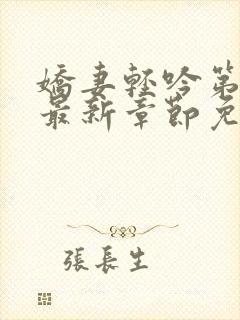 嬌妻輕吟第
最新章節免
張長生